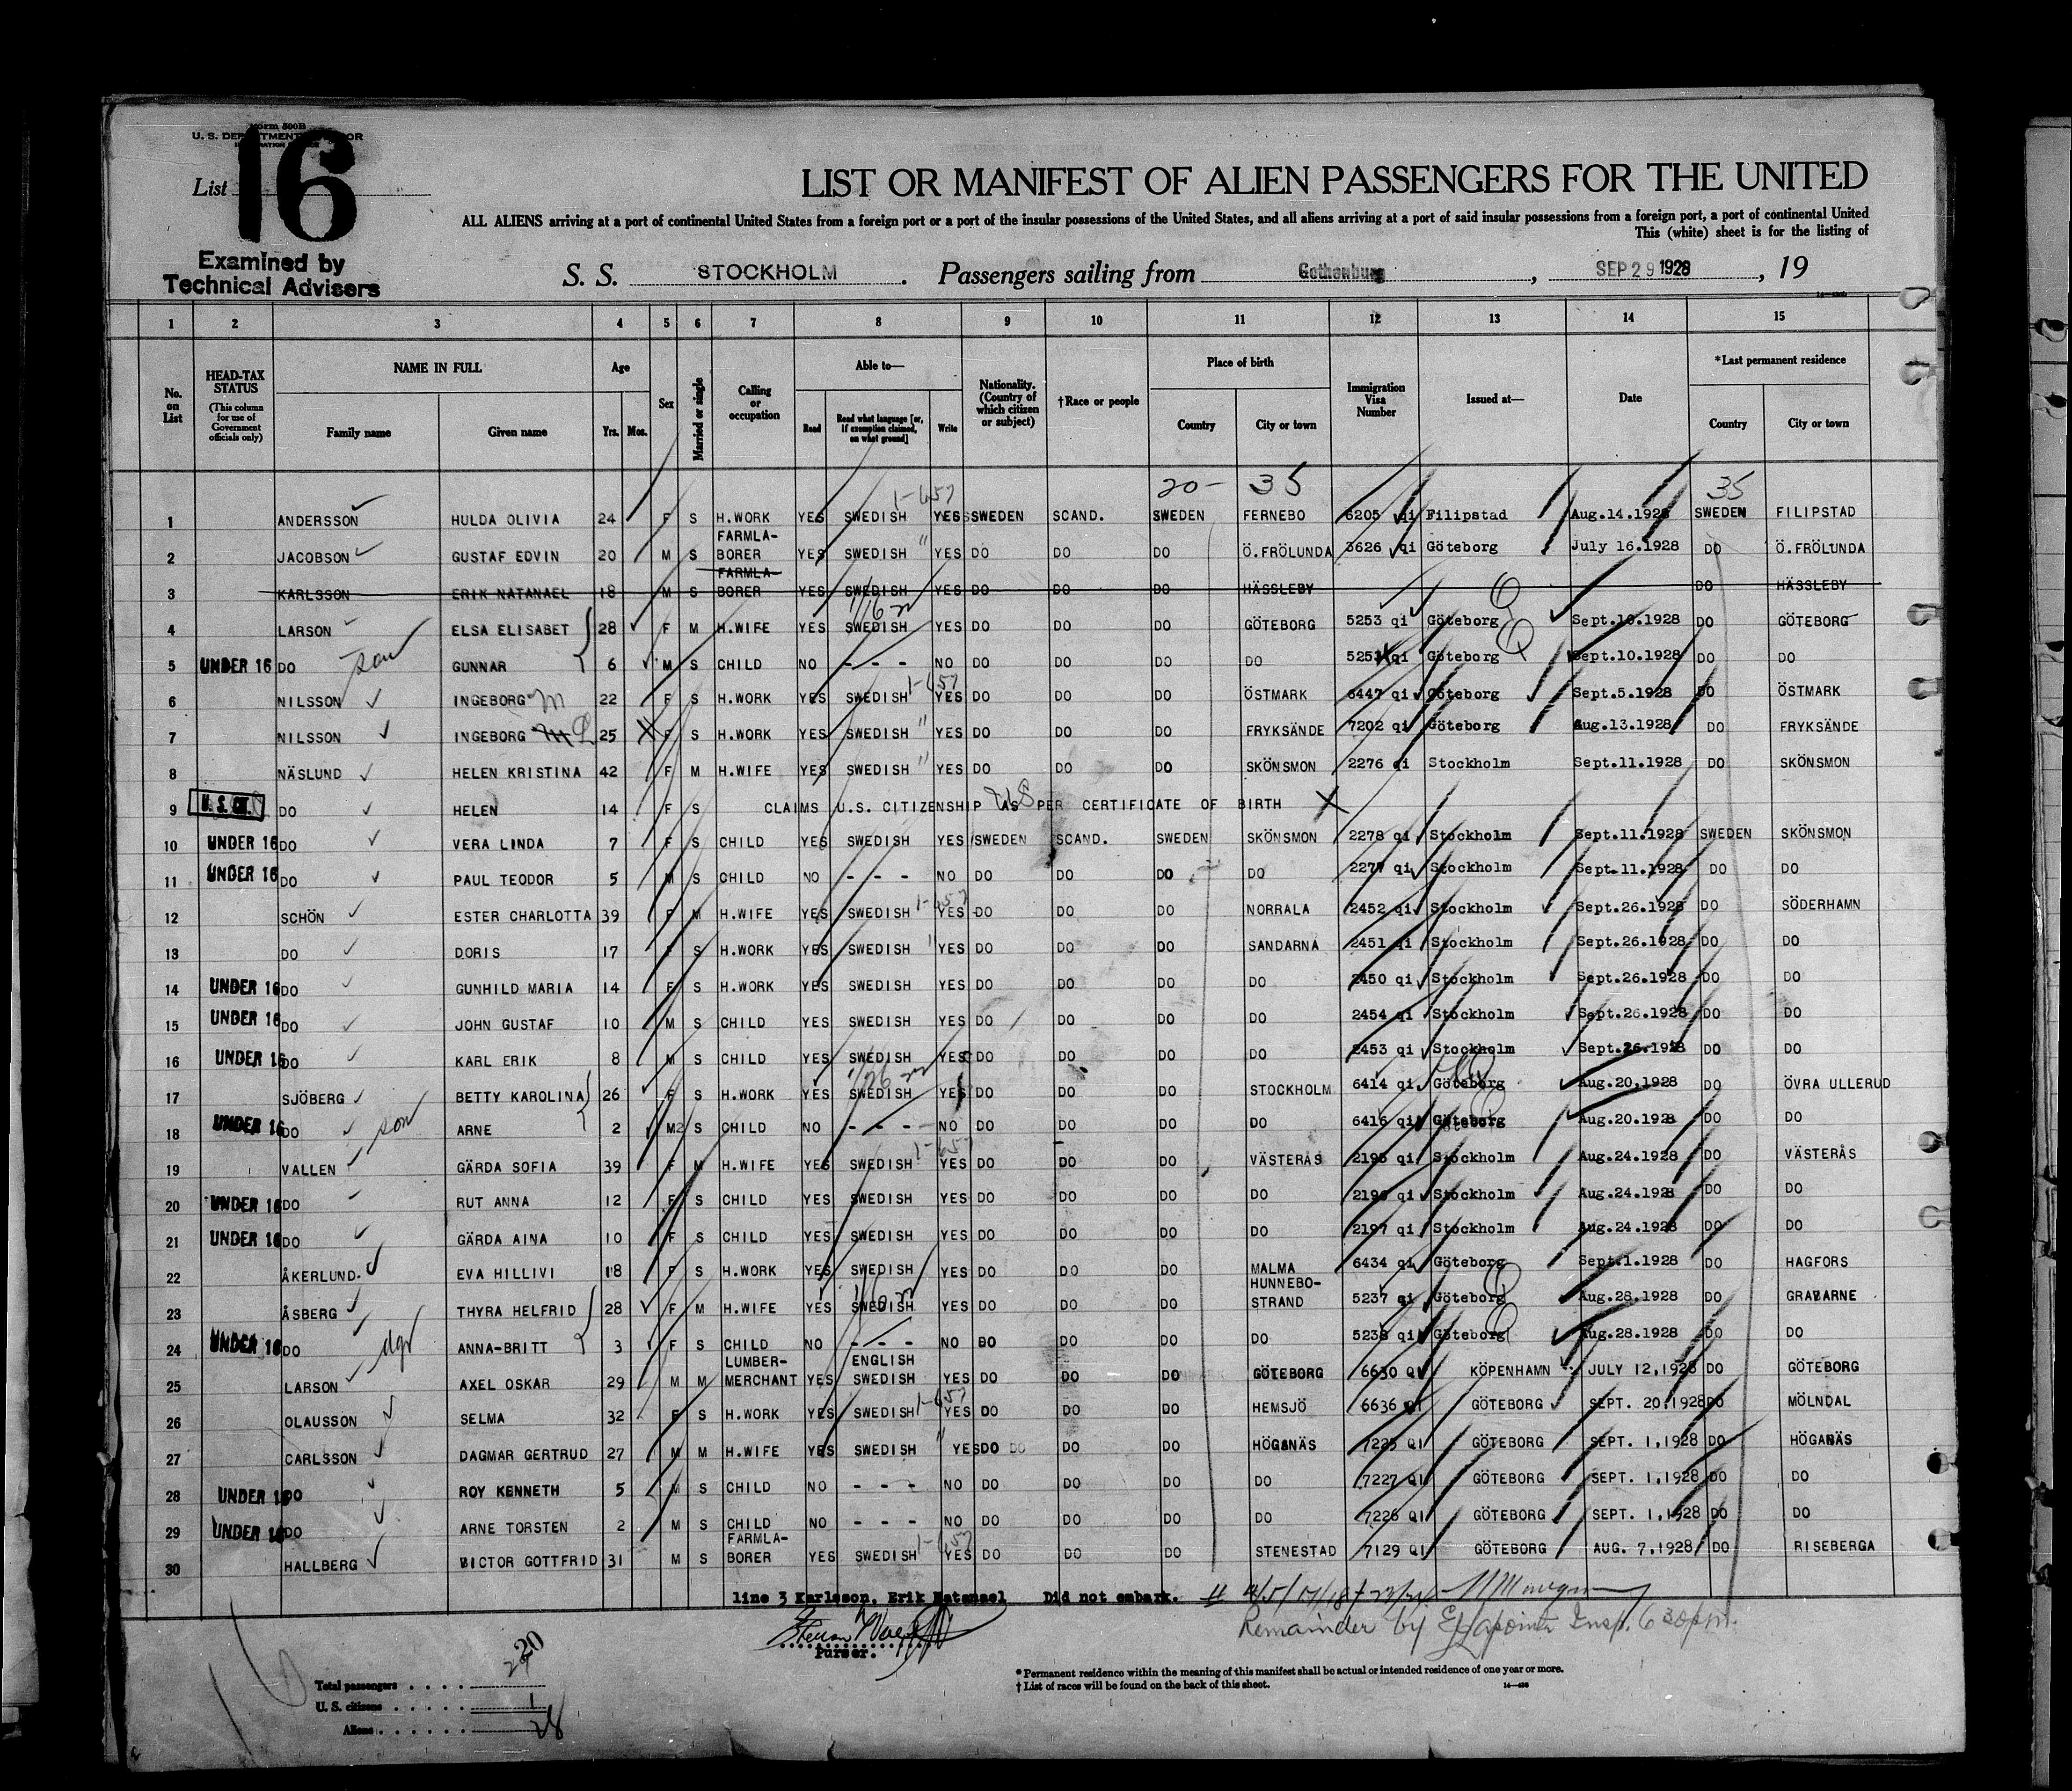 Form 500B
U. S. DEPARTMENT OF LABOR
IMMIGRATION SERVICE
List 16
LIST OR MANIFEST OF ALIEN PASSENGERS FOR THE UNITED
ALL ALIENS arriving at a port of continental United States from a foreign port or a port of the insular possessions of the United States, and all aliens arriving at a port of said insular possessions from a foreign port, a port of continental United
This (white) sheet is for the listing of
Examined by
Technical Advisers
S. S. STOCKHOLM. Passengers sailing from Gothenburg, SEP 29 1928, 19
1 2 3 4 5 6 7 8 9 10 11 12 13 14 15
No. on List
HEAD-TAX STATUS (This column for use of Government officials only)
NAME IN FULL Family name Given name
Age Yrs. Mos.
Sex
Married or single
Calling or occupation
Able to— Read Read what language [or, if exemption claimed, on what ground] Write
Nationality. (Country of which citizen or subject)
†Race or people
Place of birth Country City or town
Immigration Visa Number
Issued at—
Date
*Last permanent residence Country City or town
20- 35 35
1-657
1 ANDERSSON HULDA OLIVIA 24 F S H.WORK YES SWEDISH YES SWEDEN SCAND. SWEDEN FERNEBO 6205 qi Filipstad Aug.14.1928 SWEDEN FILIPSTAD
2 JACOBSON GUSTAF EDVIN 20 M S FARMLA-BORER YES SWEDISH " YES DO DO DO Ö.FRÖLUNDA 3626 qi Göteborg July 16.1928 DO Ö.FRÖLUNDA
3 KARLSSON ERIK NATANAEL 18 M S FARMLA-BORER YES SWEDISH YES DO DO DO HÄSSLEBY DO HÄSSLEBY
4 LARSON ELSA ELISABET 28 F M H.WIFE YES SWEDISH YES DO DO DO GÖTEBORG 5253 qi Göteborg Sept.10.1928 DO GÖTEBORG
5 UNDER 16 DO son GUNNAR 6 M S CHILD NO - - - NO DO DO DO DO 5253 qi Göteborg Sept.10.1928 DO DO
6 NILSSON INGEBORG M 22 F S H.WORK YES SWEDISH 1-657 YES DO DO DO ÖSTMARK 6447 qi Göteborg Sept.5.1928 DO ÖSTMARK
7 NILSSON INGEBORG 25 F S H.WORK YES SWEDISH " YES DO DO DO FRYKSÄNDE 7202 qi Göteborg Aug.13.1928 DO FRYKSÄNDE
8 NÄSLUND HELEN KRISTINA 42 F M H.WIFE YES SWEDISH " YES DO DO DO SKÖNSMON 2276 qi Stockholm Sept.11.1928 DO SKÖNSMON
9 U.S. CIT. DO HELEN 14 F S CLAIMS U.S. CITIZENSHIP AS PER CERTIFICATE OF BIRTH X
10 UNDER 16 DO VERA LINDA 7 F S CHILD YES SWEDISH YES SWEDEN SCAND. SWEDEN SKÖNSMON 2278 qi Stockholm Sept.11.1928 SWEDEN SKÖNSMON
11 UNDER 16 DO PAUL TEODOR 5 M S CHILD NO - - - NO DO DO DO DO 2277 qi Stockholm Sept.11.1928 DO DO
12 SCHÖN ESTER CHARLOTTA 39 F M H.WIFE YES SWEDISH 1-657 YES DO DO DO NORRALA 2452 qi Stockholm Sept.26.1928 DO SÖDERHAMN
13 DO DORIS 17 F S H.WORK YES SWEDISH " YES DO DO DO SANDARNA 2451 qi Stockholm Sept.26.1928 DO DO
14 UNDER 16 DO GUNHILD MARIA 14 F S H.WORK YES SWEDISH YES DO DO DO DO 2450 qi Stockholm Sept.26.1928 DO DO
15 UNDER 16 DO JOHN GUSTAF 10 M S CHILD YES SWEDISH YES DO DO DO DO 2454 qi Stockholm Sept.26.1928 DO DO
16 UNDER 16 DO KARL ERIK 8 M S CHILD YES SWEDISH YES DO DO DO DO 2453 qi Stockholm Sept.26.1928 DO DO
17 SJÖBERG BETTY KAROLINA 26 F S H.WORK YES SWEDISH YES DO DO DO STOCKHOLM 6414 qi Göteborg Aug.20,1928 DO ÖVRA ULLERUD
18 UNDER 16 DO son ARNE 2 M S CHILD NO - - - NO DO DO DO DO 6416 qi Göteborg Aug.20.1928 DO DO
19 VALLEN GÄRDA SOFIA 39 F M H.WIFE YES SWEDISH 1-657 YES DO DO DO VÄSTERÅS 2195 qi Stockholm Aug.24.1928 DO VÄSTERÅS
20 UNDER 16 DO RUT ANNA 12 F S CHILD YES SWEDISH YES DO DO DO DO 2196 qi Stockholm Aug.24.1928 DO DO
21 UNDER 16 DO GÄRDA AINA 10 F S CHILD YES SWEDISH YES DO DO DO DO 2197 qi Stockholm Aug.24.1928 DO DO
22 ÅKERLUND. EVA HILLIVI 18 F S H.WORK YES SWEDISH YES DO DO DO MALMA 6434 qi Göteborg Sept.1.1928 DO HAGFORS
23 ÅSBERG THYRA HELFRID 28 F M H.WIFE YES SWEDISH YES DO DO DO HUNNEBO-STRAND 5237 qi Göteborg Aug.28.1928 DO GRAVARNE
24 UNDER 16 DO dgr ANNA-BRITT 3 F S CHILD NO - - - NO DO DO DO DO 5238 qi Göteborg Aug.28.1928 DO DO
25 LARSON AXEL OSKAR 29 M M LUMBER-MERCHANT YES ENGLISH SWEDISH YES DO DO DO GÖTEBORG 6630 QI KÖPENHAMN JULY 12,1928 DO GÖTEBORG
26 OLAUSSON SELMA 32 F S H.WORK YES SWEDISH 1-657 YES DO DO DO HEMSJÖ 6636 QI GÖTEBORG SEPT. 20,1928 DO MÖLNDAL
27 CARLSSON DAGMAR GERTRUD 27 M M H.WIFE YES SWEDISH " YES DO DO DO DO HÖGANÄS 7225 QI GÖTEBORG SEPT. 1,1928 DO HÖGANÄS
28 UNDER 16 DO ROY KENNETH 5 M S CHILD NO - - - NO DO DO DO DO 7227 QI GÖTEBORG SEPT. 1,1928 DO DO
29 UNDER 16 DO ARNE TORSTEN 2 M S CHILD NO - - - NO DO DO DO DO 7226 QI GÖTEBORG SEPT. 1,1928 DO DO
30 HALLBERG VICTOR GOTTFRID 31 M S FARMLA-BORER YES SWEDISH 1-657 YES DO DO DO STENESTAD 7129 QI GÖTEBORG AUG. 7,1928 DO RISEBERGA
line 3 Karlsson, Erik Natanael Did not embark. 4/5/17/18/
Remainder by Insp. 6 30 pm.
Purser.
Total passengers
U. S. citizens 1
Aliens 28
* Permanent residence within the meaning of this manifest shall be actual or intended residence of one year or more.
† List of races will be found on the back of this sheet.